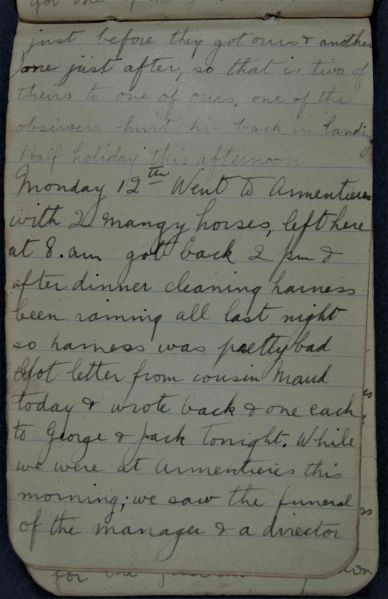 just before they got ours & another
one just after, so that is two of
theirs to one of ours, one of the
obsirvers hurt his back in landing
Half holiday this afternoon
Monday 12th Went to Armentieres
with 2 mangy horses, left here
at 8. am got back 2 pm &
after dinner cleaning harness
been raining all last night
so harness was pretty bad
Got letter from cousin Maud
today & wrote back & one each
to George & Jack tonight. While
we were at Armentieres this
morning; we saw the funeral
of the manager & a director
for the